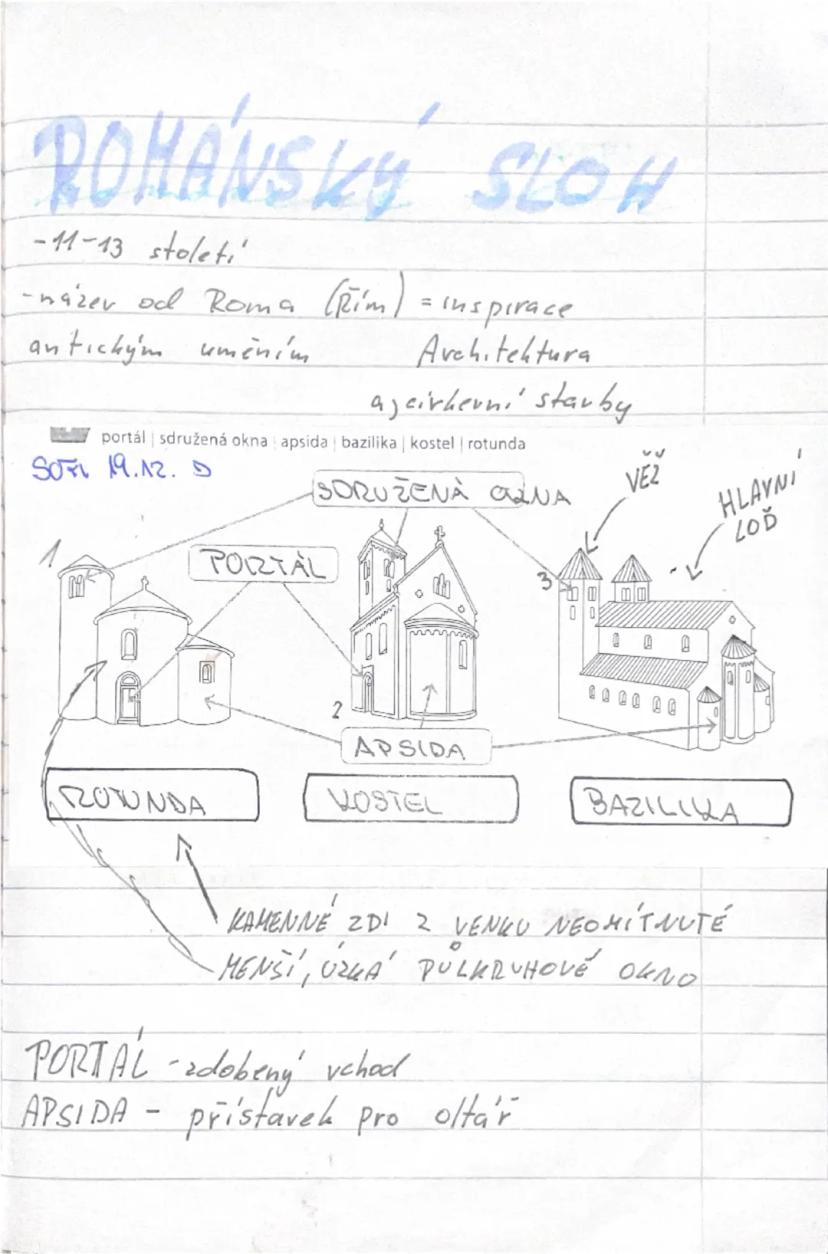 ROMÁNSKÝ SLOH
-11-13 století
-název od Roma (Řím) = inspirace
antickým uměním Architektura
a) církevní stavby
portál | sdružená okna | apsida | bazilika | kostel | rotunda
19.12.
SDRUŽENÁ OKNA
VĚŽ
HLAVNÍ
LOĎ
1
PORTÁL
3
2
APSIDA
ROTUNDA
KOSTEL
BAZILIKA
KAMENNÉ ZDI Z VENKU NEOMÍTNUTÉ
MENŠÍ, ÚZKÁ PŮLKRUHOVÉ OKNO
PORTÁL - zdobený vchod
APSIDA - přístavek pro oltář